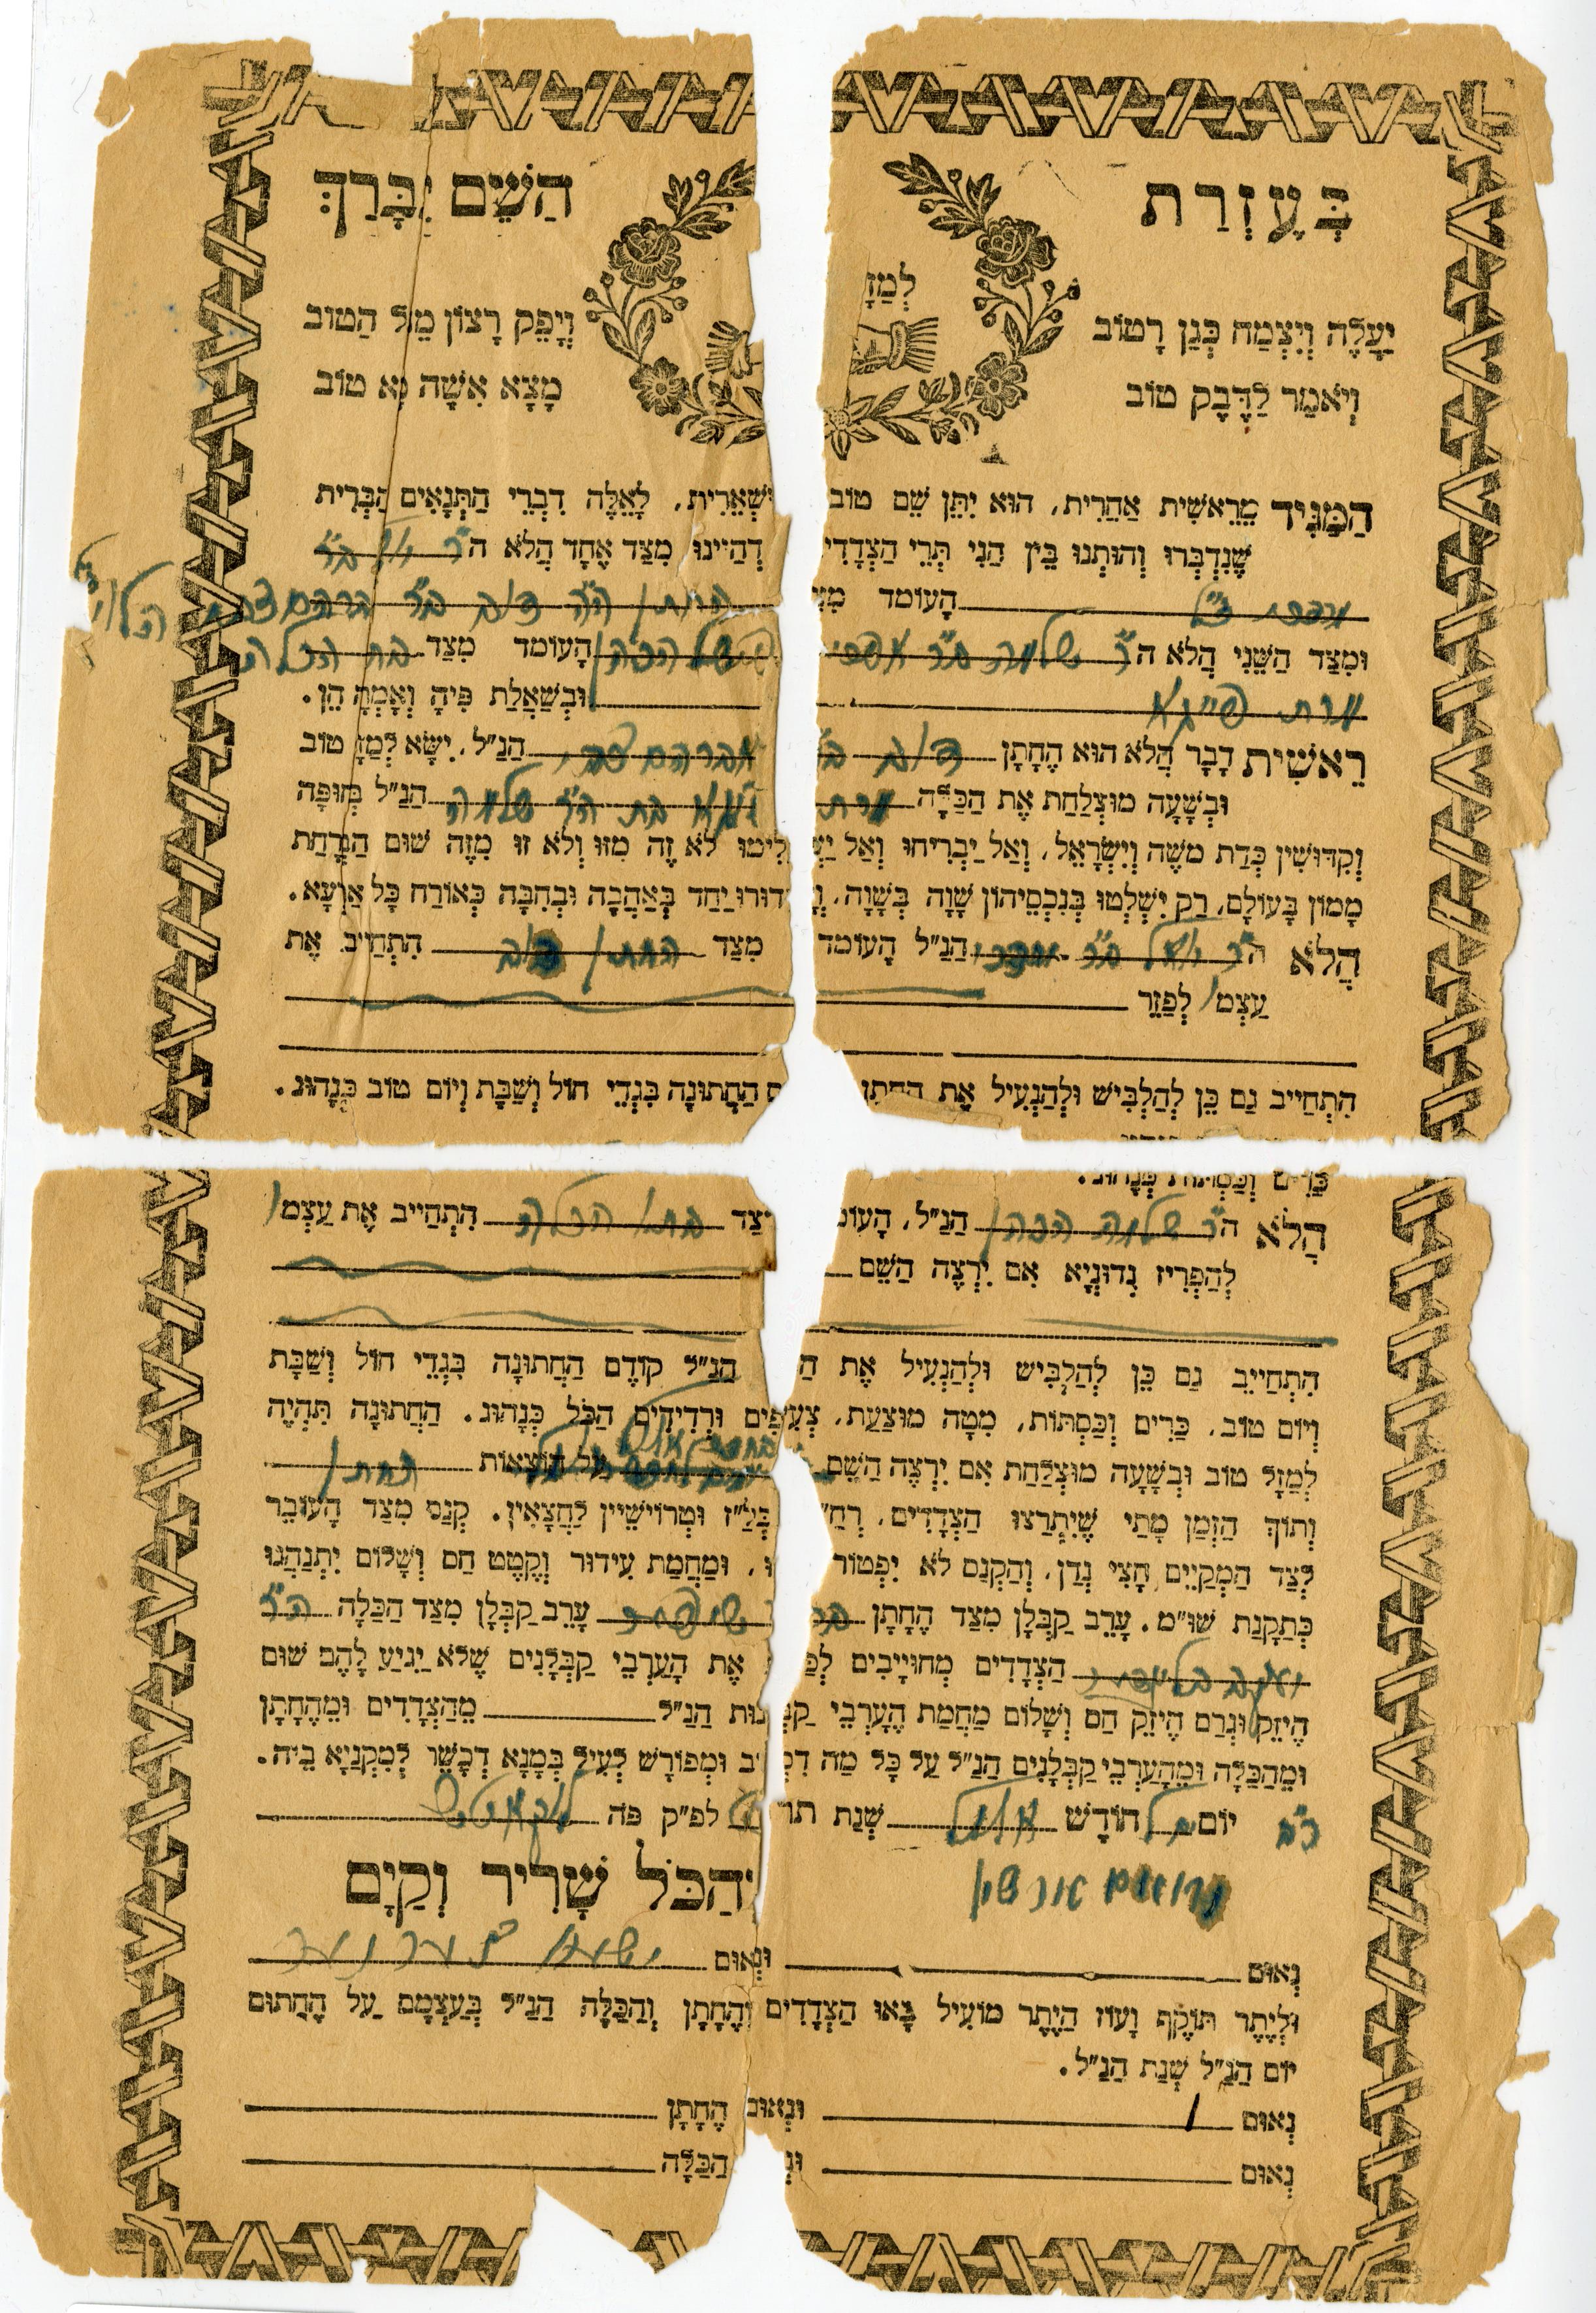 בְּעֶזְרַת הַשֵּׁם יִבָּרַךְ:
לְמַזָּ
יַעֲלֶה וְיִצְמַח כְּגַן רָטוֹב וְיָפֵק רָצוֹן מֵאֵל הַטּוֹב
וְיֹאמַר לַדֶּבֶק טוֹב מָצָא אִשָּׁה מָצָא טוֹב
הַמַּגִּיד מֵרֵאשִׁית אַחֲרִית, הוּא יִתֵּן שֵׁם טוֹב וּשְׁאֵרִית, לְאֵלֶּה דִבְרֵי הַתְּנָאִים הַבְּרִית
שֶׁנִּדְבְּרוּ וְהוּתְנוּ בֵּין הַנֵי תְּרֵי הַצְּדָדִי דְהַיְינוּ מִצַּד אֶחָד הֲלֹא ה"ר
הָעוֹמֵד מִצַּ החתן ה"ה דוב ב"ר
וּמִצַּד הַשֵּׁנִי הֲלֹא ה"ר שלמה ב"ר הכהן הָעוֹמֵד מִצַּד בת הכלה
מרת פייגא וּבִשְׁאֵלַת פִּיהָ וְאָמְרָה הֵן.
רֵאשִׁית דָּבָר הֲלֹא הוּא הֶחָתָן דוב ב"ר אברהם צבי הַנַּ"ל, יִשָּׂא לְמַזָּל טוֹב
וּבְשָׁעָה מוּצְלַחַת אֶת הַכַּלָּה מרת פייגא בת ה"ר שלמה הַנַּ"ל בְּחוּפָּה
וְקִדּוּשִׁין כְּדַת מֹשֶׁה וְיִשְׂרָאֵל, וְאַל יַבְרִיחוּ וְאַל יַעְלִימוּ לֹא זֶה מִזּוֹ וְלֹא זוּ מִזֶּה שׁוּם הַבְרָחַת
מָמוֹן בָּעוֹלָם, רַק יִשְׁלְטוּ בְּנִכְסֵיהוֹן שָׁוֶה בְּשָׁוֶה, וְיָדוּרוּ יַחַד בְּאַהֲבָה וּבְחִבָּה כְּאוֹרַח כָּל אַרְעָא.
הֲלֹא ה"ר יואל ב"ר הַנַּ"ל הָעוֹמֵד מִצַּד החתן דוב הִתְחַיֵּיב אֶת
עַצְמ לְפַזֵּר
הִתְחַיֵּיב גַּם כֵּן לְהַלְבִּישׁ וּלְהַנְעִיל אֶת הֶחָתָן הַחֲתוּנָה בִּגְדֵי חוֹל וְשַׁבָּת וְיוֹם טוֹב כְּנָהוּג.
כָּרִים וּכְסָתוֹת כְּנָהוּג.
הֲלֹא ה"ר שלמה הכהן הַנַּ"ל, הָעוֹמֵ מִצַּד בתו הכלה הִתְחַיֵּיב אֶת עַצְמו
לְהַפְרִיז נְדוּנְיָא אִם יִרְצֶה הַשֵּׁם
הִתְחַיֵּיב גַּם כֵּן לְהַלְבִּישׁ וּלְהַנְעִיל אֶת הַ הַנַּ"ל קוֹדֶם הַחֲתוּנָה בִּגְדֵי חוֹל וְשַׁבָּת
וְיוֹם טוֹב, כָּרִים וּכְסָתוֹת, מִטָּה מוּצַעַת, צְעִיפִים וּרְדִידִים הַכֹּל כְּנָהוּג. הַחֲתוּנָה תִּהְיֶה
לְמַזָּל טוֹב וּבְשָׁעָה מוּצְלַחַת אִם יִרְצֶה הַשֵּׁם עַל הוֹצָאוֹת החתן
וְתוֹךְ הַזְּמַן מָתַי שֶׁיִּתְרַצּוּ הַצְּדָדִים, רְחַ"שׁ בְּלַ"ז וּטְרוֹיְשֵׁיין לַחֲצָאִין. קְנַס מִצַּד הָעוֹבֵר
לְצַד הַמְקַיֵּים חֲצִי נְדָן, וְהַקְּנַס לֹא יִפְטוֹר וּמֵחֲמַת עִידּוּר וּקְטָט חַס וְשָׁלוֹם יִתְנַהֲגוּ
כְּתַקָּנַת שׁוּ"מ. עָרֵב קַבְּלָן מִצַּד הֶחָתָן עָרֵב קַבְּלָן מִצַּד הַכַּלָּה ה"ר
יעקב הַצְּדָדִים מְחוּיָּיבִים לְפַ אֶת הָעַרְבֵי קַבְּלָנִים שֶׁלֹּא יַגִּיעַ לָהֶם שׁוּם
הֶיזֵק וּגְרַם הֶיזֵק חַס וְשָׁלוֹם מֵחֲמַת הָעַרְבֵי קַבְּלָנוּת הַנַּ"ל מֵהַצְּדָדִים וּמֵהֶחָתָן
וּמֵהַכַּלָּה וּמֵהָעַרְבֵי קַבְּלָנִים הַנַּ"ל עַל כָּל מַה דִּכְתִיב וּמְפוֹרָשׁ לְעֵיל בְּמָנָא דְּכָשֵׁר לְמִקְנְיָא בֵיהּ.
יוֹם חוֹדֶשׁ אלול שְׁנַת תר לפ"ק פֹּה
וְהַכֹּל שָׁרִיר וְקַיָּם
נְאוּם וּנְאוּם
וּלְיֶתֶר תּוֹקֶף וָעוֹז הַיֶּתֶר מוֹעִיל בָּאוּ הַצְּדָדִים וְהֶחָתָן וְהַכַּלָּה הַנַּ"ל בְּעַצְמָם עַל הֶחָתוּם
יוֹם הַנַּ"ל שְׁנַת הַנַּ"ל.
נְאוּם וּנְאוּם הֶחָתָן
נְאוּם וּנְ הַכַּלָּה